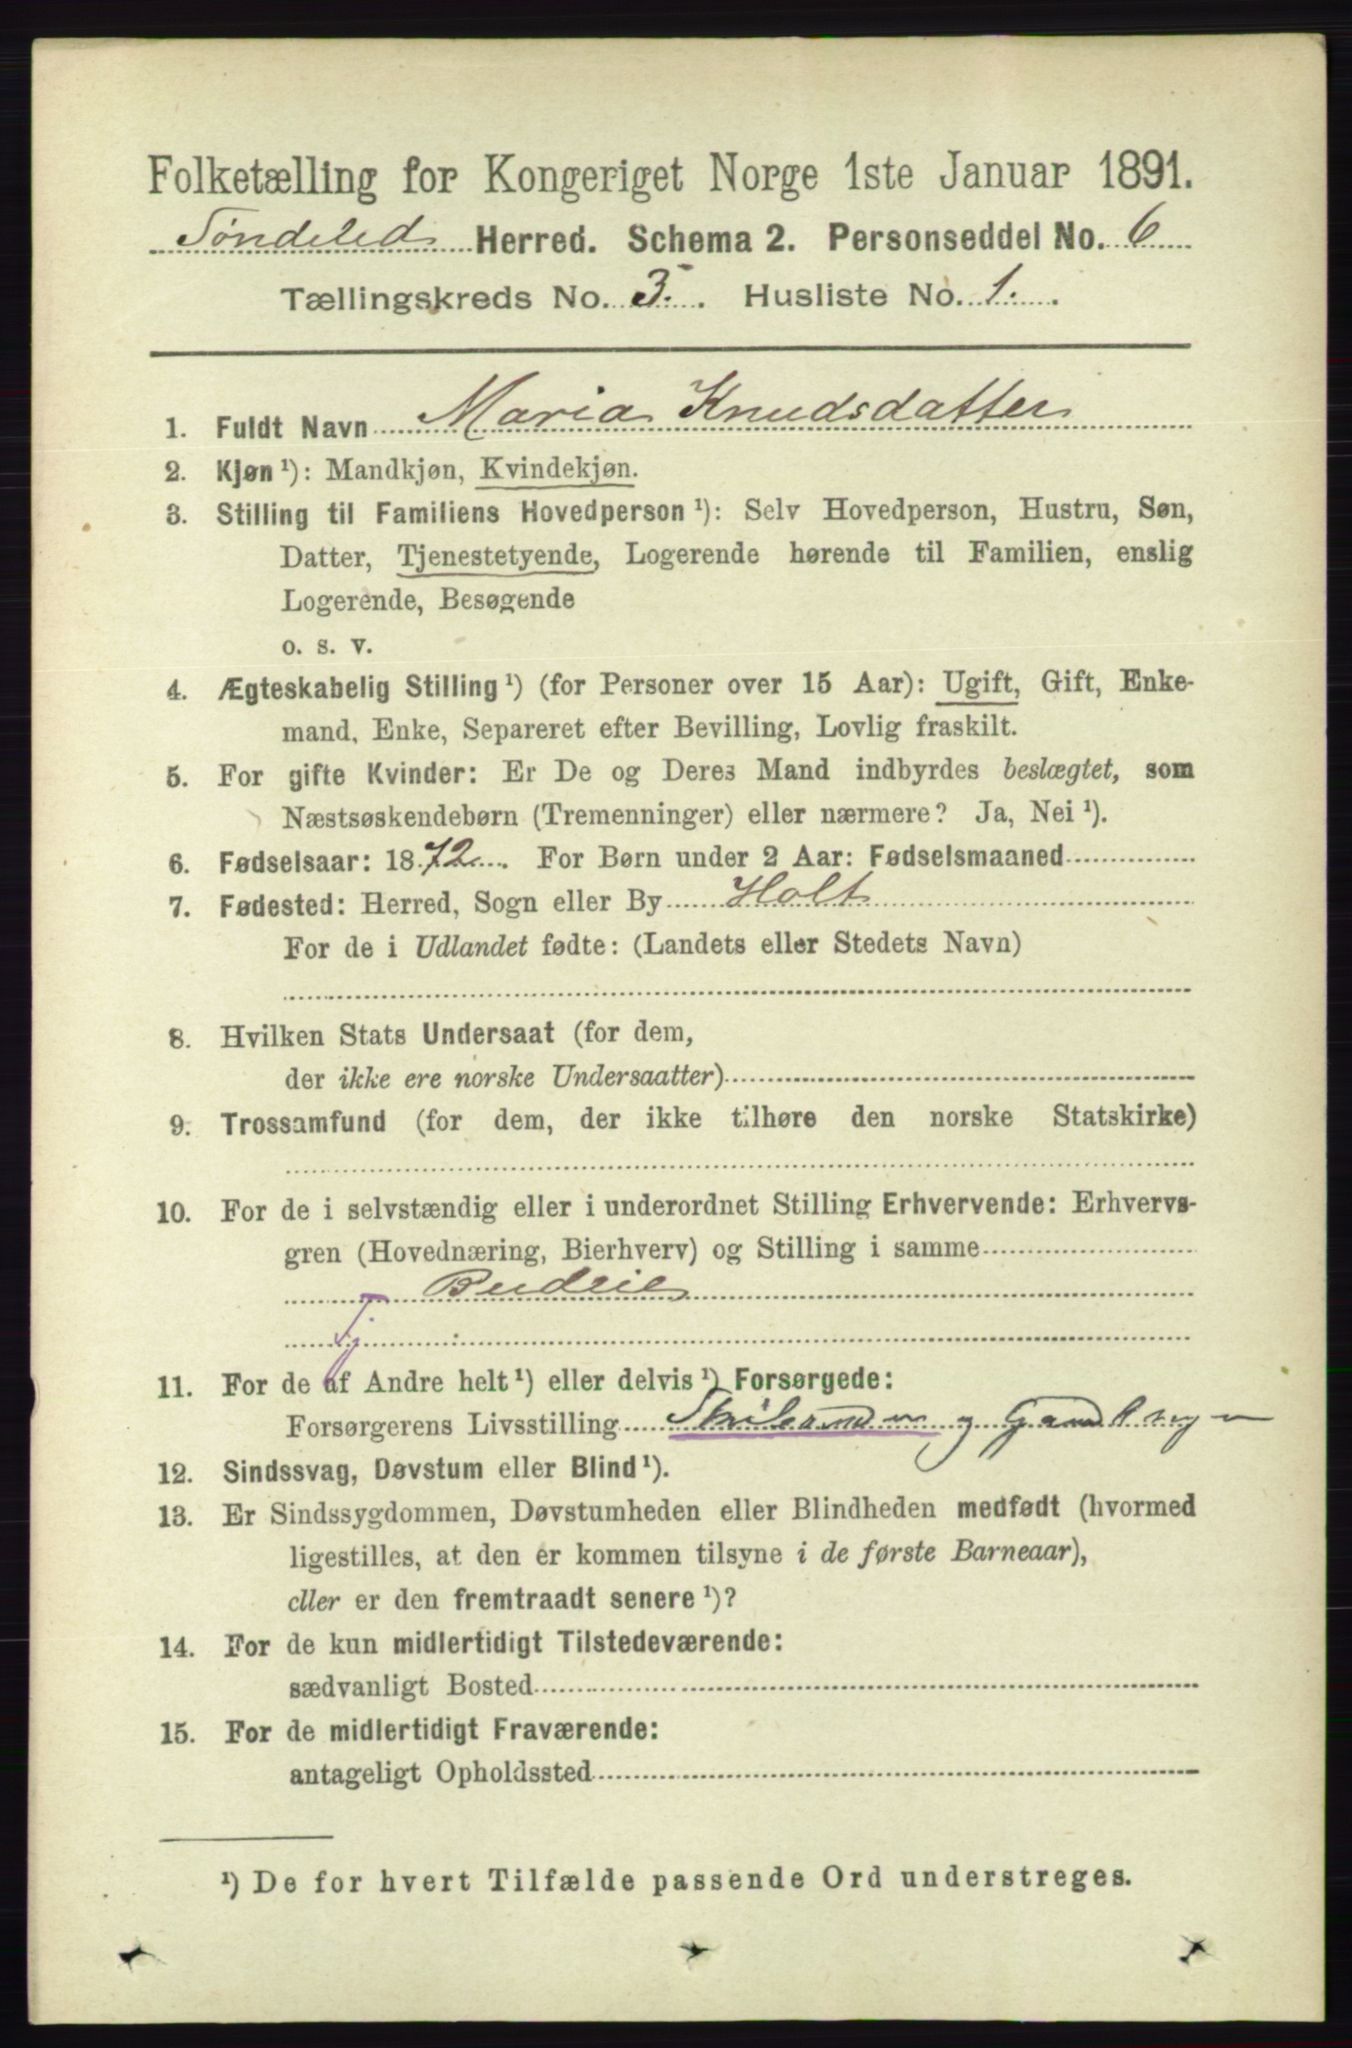 Folketælling for Kongeriget Norge 1ste Januar 1891.
Søndeled Herred. Schema 2. Personseddel No. 6
Tællingskreds No. 3. Husliste No. 1.
1. Fuldt Navn Maria Knudsdatter
2. Kjøn ¹): Mandkjøn, Kvindekjøn.
3. Stilling til Familiens Hovedperson ¹): Selv Hovedperson, Hustru, Søn,
Datter, Tjenestetyende, Logerende hørende til Familien, enslig
Logerende, Besøgende
o. s. v.
4. Ægteskabelig Stilling ¹) (for Personer over 15 Aar): Ugift, Gift, Enke-
mand, Enke, Separeret efter Bevilling, Lovlig fraskilt.
5. For gifte Kvinder: Er De og Deres Mand indbyrdes beslægtet, som
Næstsøskendebørn (Tremenninger) eller nærmere? Ja, Nei ¹).
6. Fødselsaar: 1872. For Børn under 2 Aar: Fødselsmaaned
7. Fødested: Herred, Sogn eller By Holt
For de i Udlandet fødte: (Landets eller Stedets Navn)
8. Hvilken Stats Undersaat (for dem,
der ikke ere norske Undersaatter)
9. Trossamfund (for dem, der ikke tilhøre den norske Statskirke)
10. For de i selvstændig eller i underordnet Stilling Erhvervende: Erhvervs-
gren (Hovednæring, Bierhverv) og Stilling i samme
Budeie
Tj
11. For de af Andre helt ¹) eller delvis ¹) Forsørgede:
Forsørgerens Livsstilling
12. Sindssvag, Døvstum eller Blind ¹).
13. Er Sindssygdommen, Døvstumheden eller Blindheden medfødt (hvormed
ligestilles, at den er kommen tilsyne i de første Barneaar),
eller er den fremtraadt senere ¹)?
14. For de kun midlertidigt Tilstedeværende:
sædvanligt Bosted
15. For de midlertidigt Fraværende:
antageligt Opholdssted
¹) De for hvert Tilfælde passende Ord understreges.